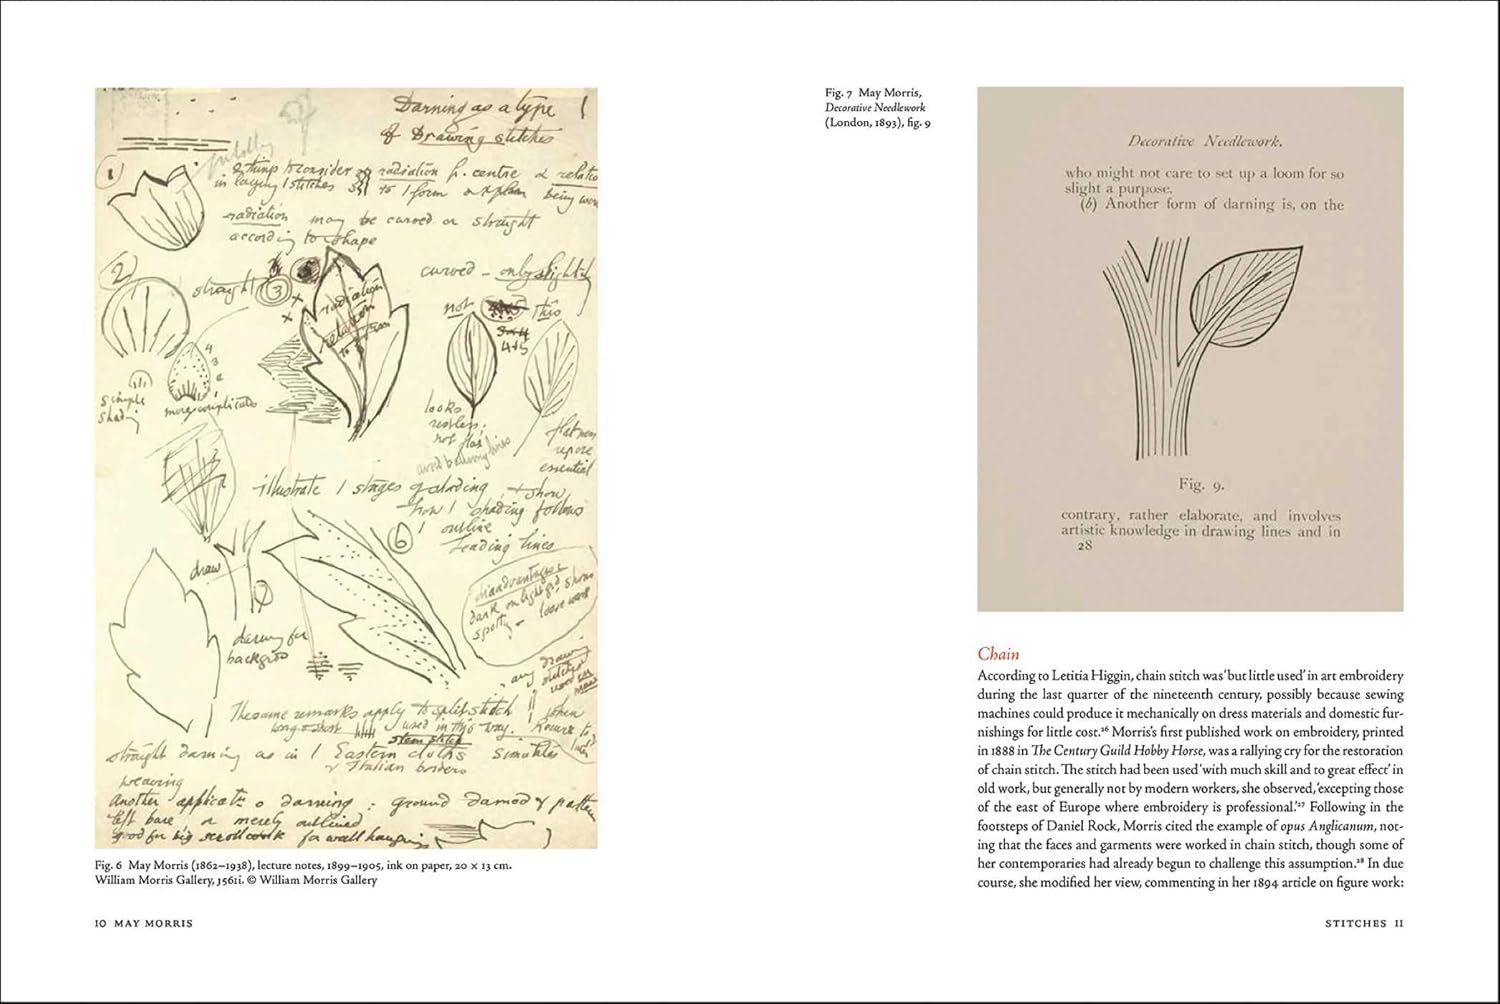 Darning as a type
of Drawing stitches
1
things to consider
radiation fr. centre & relatio
in laying stitches
to form
being wor
radiation may be curved or straight
according to shape
2
straight
3
5
curved – only slightly
radiation
relation
to
not
this
4+5
4
3
2
simple
shading
more complicated
looks
restless.
not flat
avoid bawny lines
flatness
repose
essential
illustrate stages of shading + show
how shading follows
outline
leading lines
6
draw
disadvantages
dark on light grd shows
spotty –
loose work
darning for
backgrod
any drawing
The same remarks apply to split stitch
long & short
used in this way.
when
stem stitch
straight darning as in Eastern cloths simulates
& Italian borders
weaving
Another applicatn o darning : ground darned & pattern
left bare or merely outlined
good for big scrollwork for wall hanging
Fig. 6 May Morris (1862–1938), lecture notes, 1899–1905, ink on paper, 20 × 13 cm.
William Morris Gallery, J561i. © William Morris Gallery
10 MAY MORRIS
Fig. 7 May Morris,
Decorative Needlework
(London, 1893), fig. 9
Decorative Needlework.
who might not care to set up a loom for so
slight a purpose.
(b) Another form of darning is, on the
Fig. 9.
contrary, rather elaborate, and involves
artistic knowledge in drawing lines and in
28
Chain
According to Letitia Higgin, chain stitch was ‘but little used’ in art embroidery
during the last quarter of the nineteenth century, possibly because sewing
machines could produce it mechanically on dress materials and domestic fur-
nishings for little cost.²⁶ Morris’s first published work on embroidery, printed
in 1888 in The Century Guild Hobby Horse, was a rallying cry for the restoration
of chain stitch. The stitch had been used ‘with much skill and to great effect’ in
old work, but generally not by modern workers, she observed, ‘excepting those
of the east of Europe where embroidery is professional.’²⁷ Following in the
footsteps of Daniel Rock, Morris cited the example of opus Anglicanum, not-
ing that the faces and garments were worked in chain stitch, though some of
her contemporaries had already begun to challenge this assumption.²⁸ In due
course, she modified her view, commenting in her 1894 article on figure work:
STITCHES 11